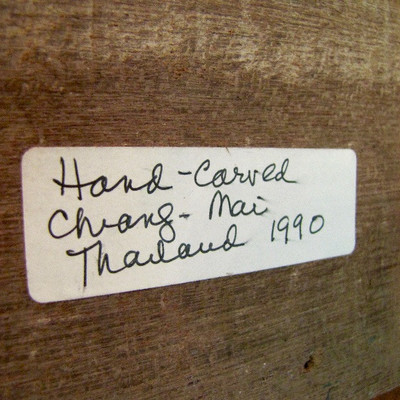 Hand-Carved
Chiang-Mai
Thailand 1990